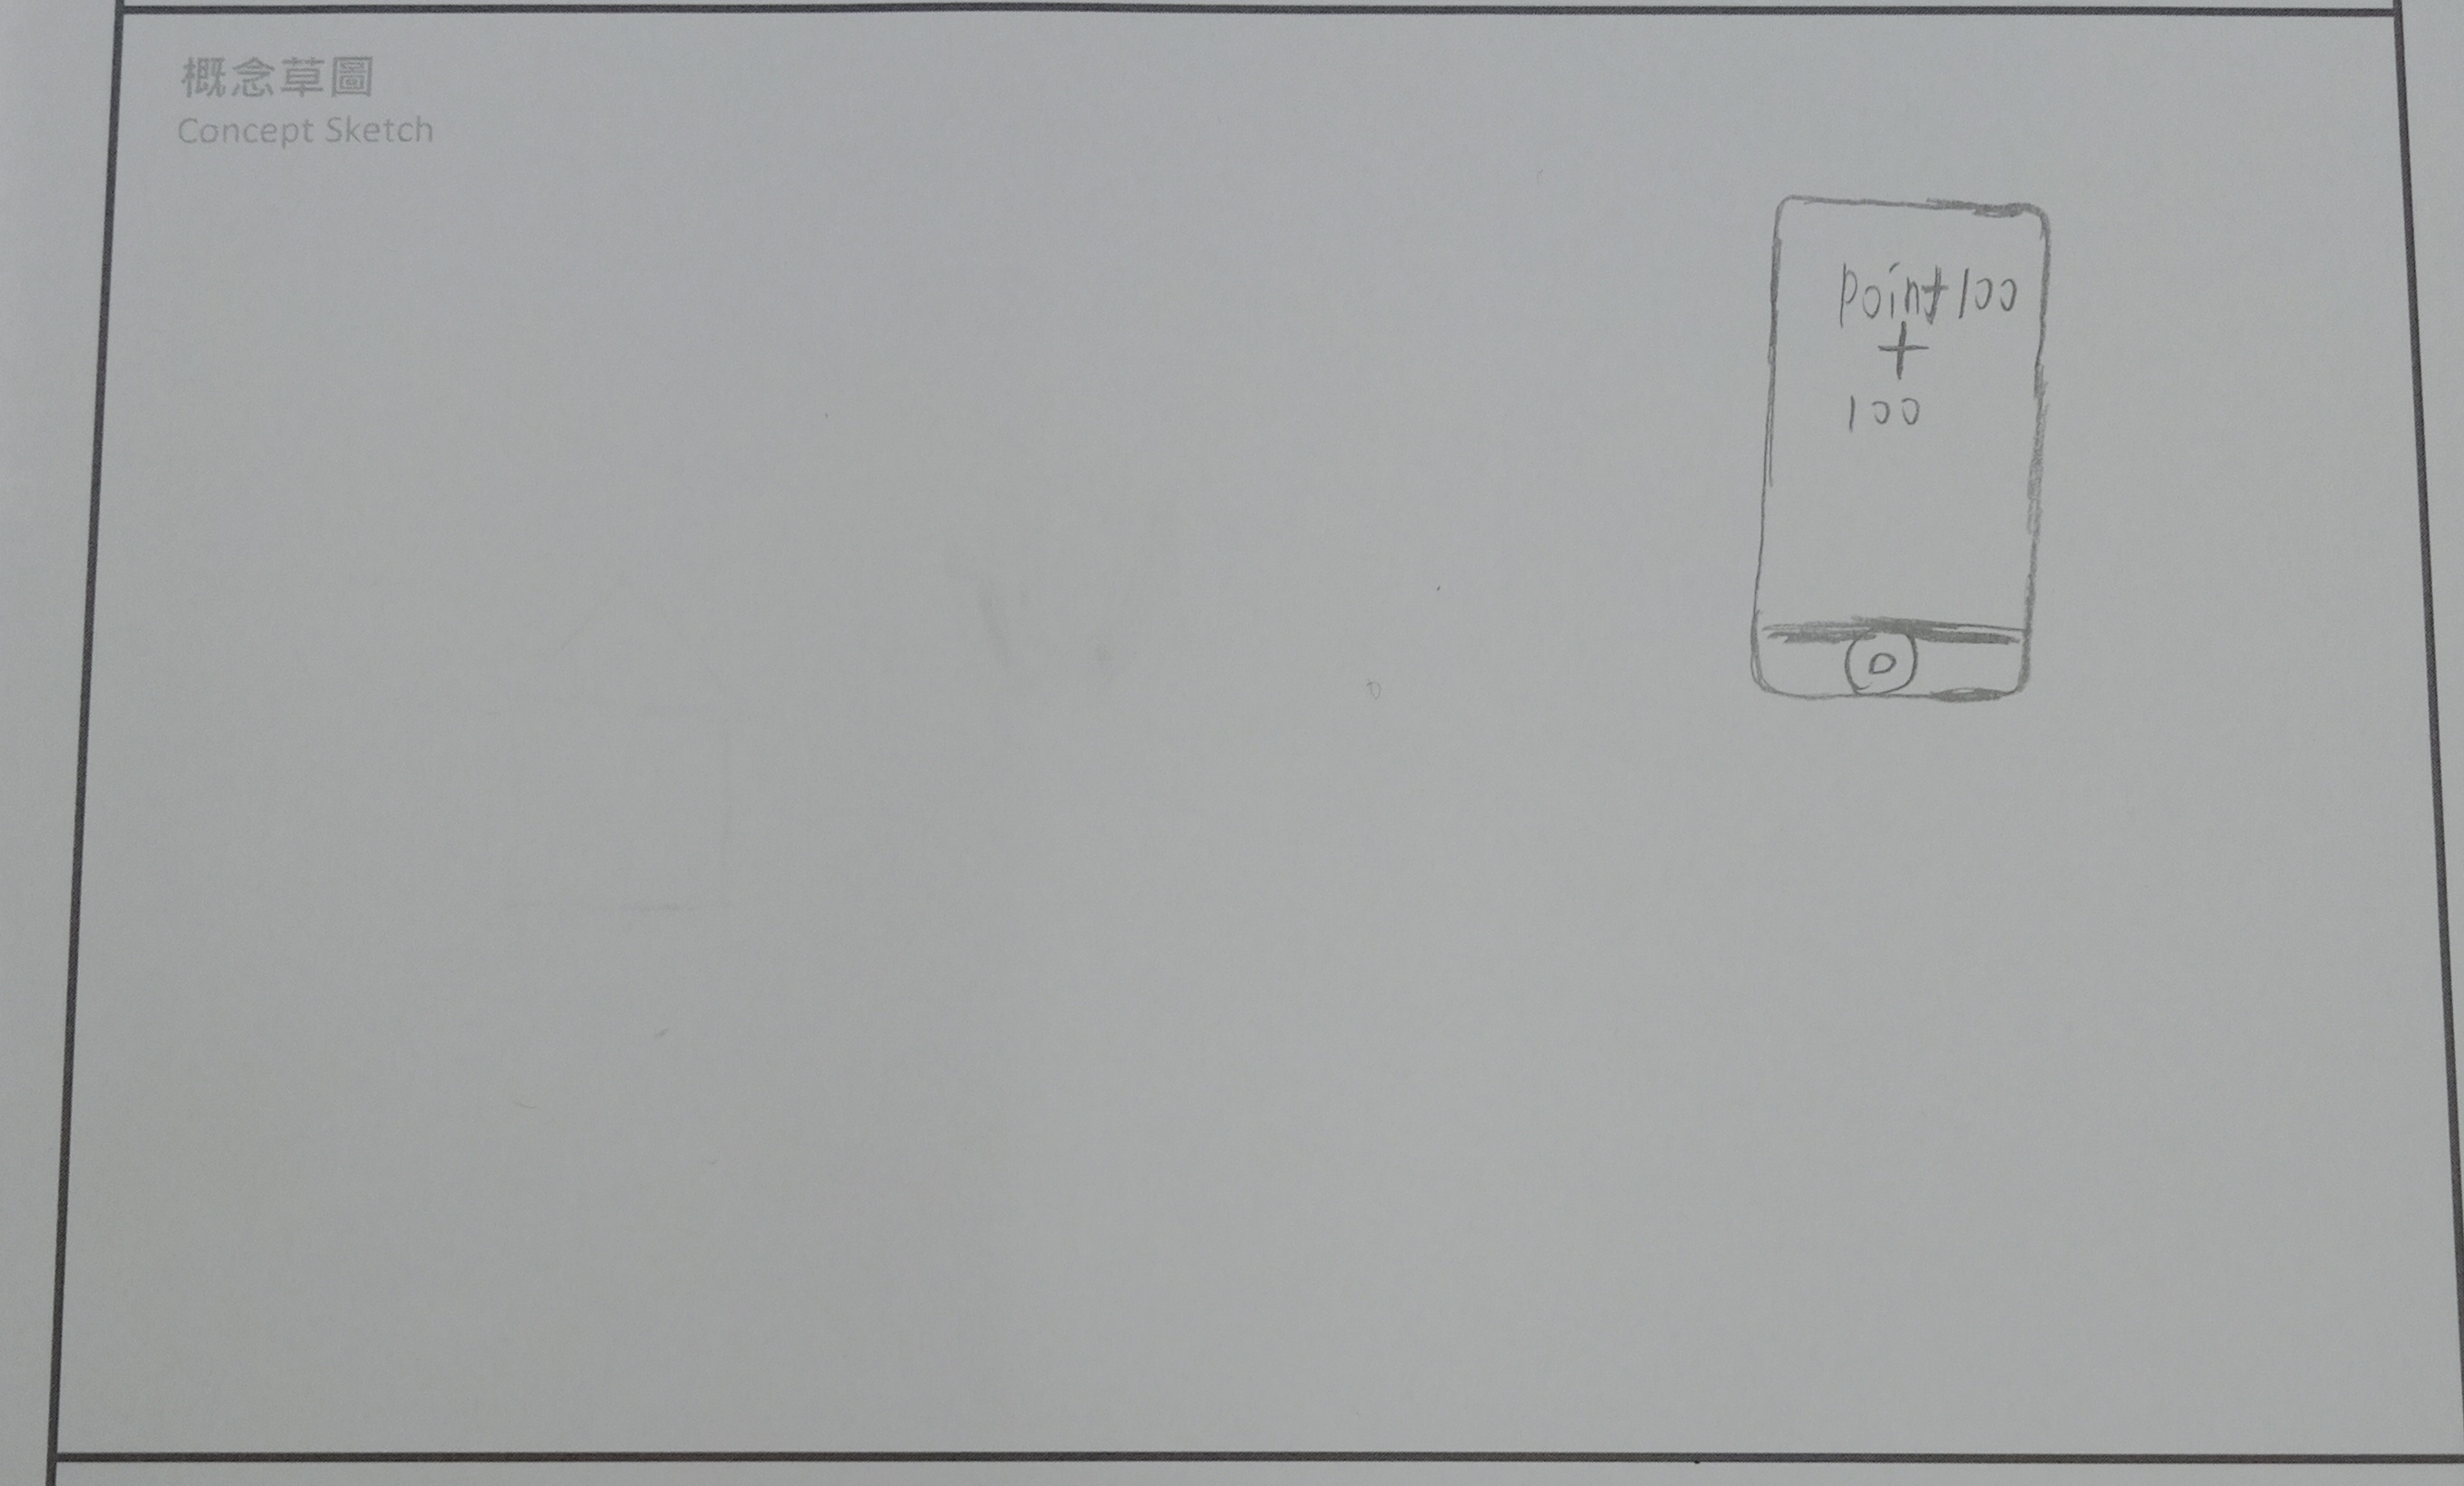 概念草圖
Concept Sketch
Point 100
+
100